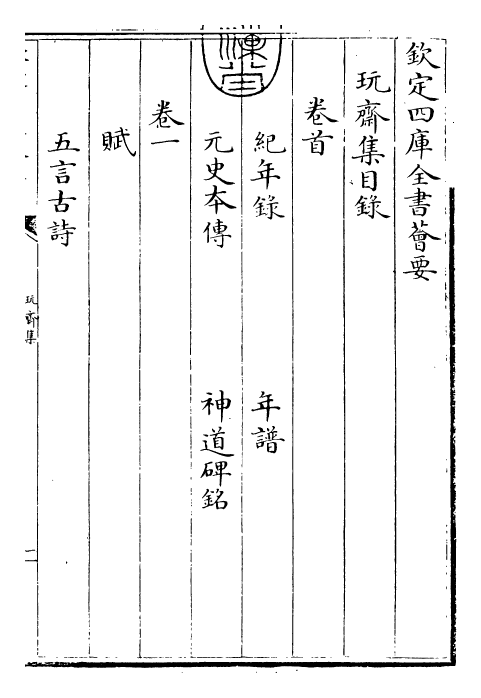 欽定四庫全書薈要
玩齋集目錄
卷首
紀年錄 年譜
元史本傳 神道碑銘
卷一
賦
五言古詩
玩齋集